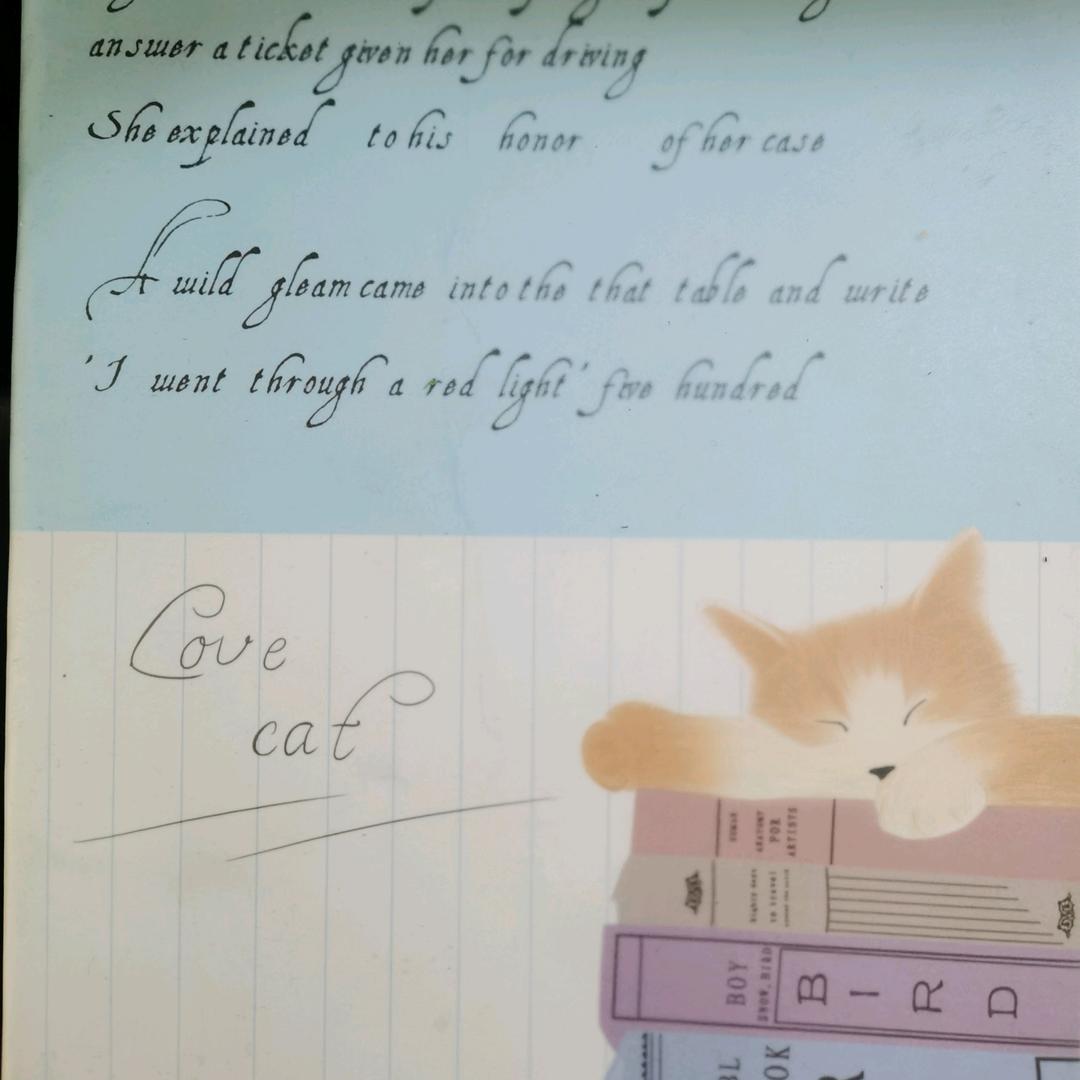 answer a ticket given her for driving
She explained to his honor of her case
A wild gleam came into the that table and write
'I went through a red light' five hundred
Love
cat
HUMAN
ANATOMY
FOR
ARTISTS
BOY
SNOW, BIRD
BIRD